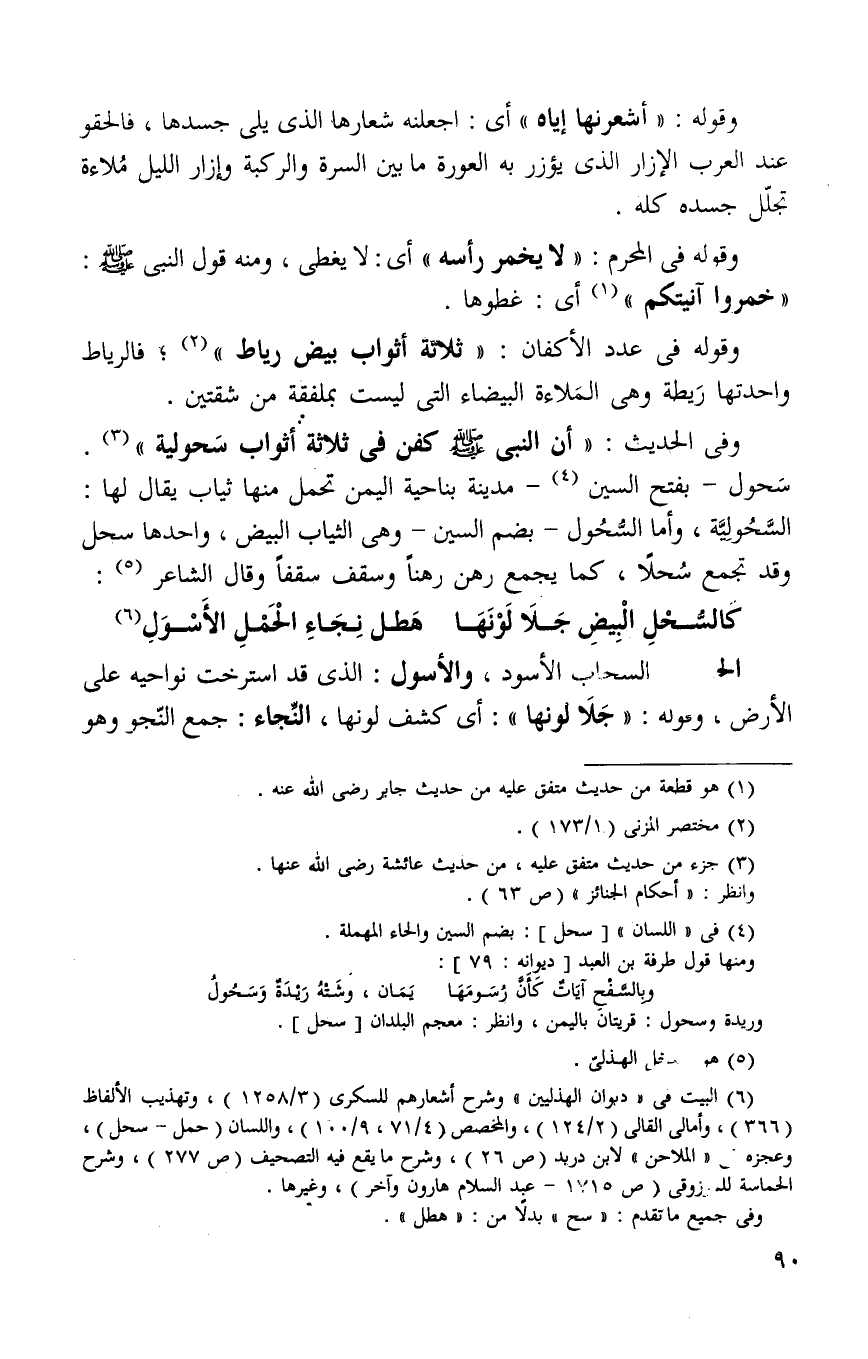 وقوله : « أشعرنها إياه » أى : اجعلنه شعارها الذى يلى جسدها ، فالحقو
عند العرب الإزار الذى يؤزر به العورة ما بين السرة والركبة وإزار الليل مُلاءة
تجلّل جسده كله .
وقوله فى المحرم : « لا يخمر رأسه » أى : لا يغطى ، ومنه قول النبى ﷺ :
« خمروا آنيتكم »(١) أى : غطوها .
وقوله فى عدد الأكفان : « ثلاثة أثواب بيض رياط »(٢) ؛ فالرياط
واحدتها رَيطة وهى المَلاءة البيضاء التى ليست بملفقة من شقتين .
وفى الحديث : « أن النبى ﷺ كفن فى ثلاثة أثواب سَحولية »(٣) .
سَحول - بفتح السين (٤) - مدينة بناحية اليمن تحمل منها ثياب يقال لها :
السَّحُولِيَّة ، وأما السُّحُول - بضم السين - وهى الثياب البيض ، واحدها سحل
وقد تجمع سُحلًا ، كما يجمع رهن رهناً وسقف سقفاً وقال الشاعر (٥) :
كَالسُّحْلِ الْبِيضِ جَلَا لَوْنَهَا هَطل نِجَاءِ الْحَمْلِ الأَسْوَلِ(٦)
السحاب الأسود ، والأسول : الذى قد استرخت نواحيه على
الأرض ، وقوله : « جَلَا لونها » : أى كشف لونها ، النِّجاء : جمع النّجو وهو
(١) هو قطعة من حديث متفق عليه من حديث جابر رضى الله عنه .
(٢) مختصر المزنى ( ١٧٣/١ ) .
(٣) جزء من حديث متفق عليه ، من حديث عائشة رضى الله عنها .
وانظر : « أحكام الجنائز » ( ص ٦٣ ) .
(٤) فى « اللسان » [ سحل ] : بضم السين والحاء المهملة .
ومنها قول طرفة بن العبد [ ديوانه : ٧٩ ] :
وبِالسَّفْحِ آيَاتٌ كَأَنَّ رُسُومَهَا يَمَان ، وَشَتْهُ رَيْدَةٌ وَسَحُولُ
وريدة وسحول : قريتان باليمن ، وانظر : معجم البلدان [ سحل ] .
(٥) الهذلىّ .
(٦) البيت فى « ديوان الهذليين » وشرح أشعارهم للسكرى ( ١٢٥٨/٣ ) ، وتهذيب الألفاظ
( ٣٦٦ ) ، وأمالى القالى ( ١٢٤/٢ ) ، والمخصص ( ٧١/٤ ، ١٠٠/٩ ) ، واللسان ( حمل - سحل ) ،
وعجزه « الملاحن » لابن دريد ( ص ٢٦ ) ، وشرح ما يقع فيه التصحيف ( ص ٢٧٧ ) ، وشرح
الحماسة ( ص - عبد السلام هارون وآخر ) ، وغيرها .
وفى جميع ما تقدم : « سح » بدلًا من : « هطل » .
٩٠